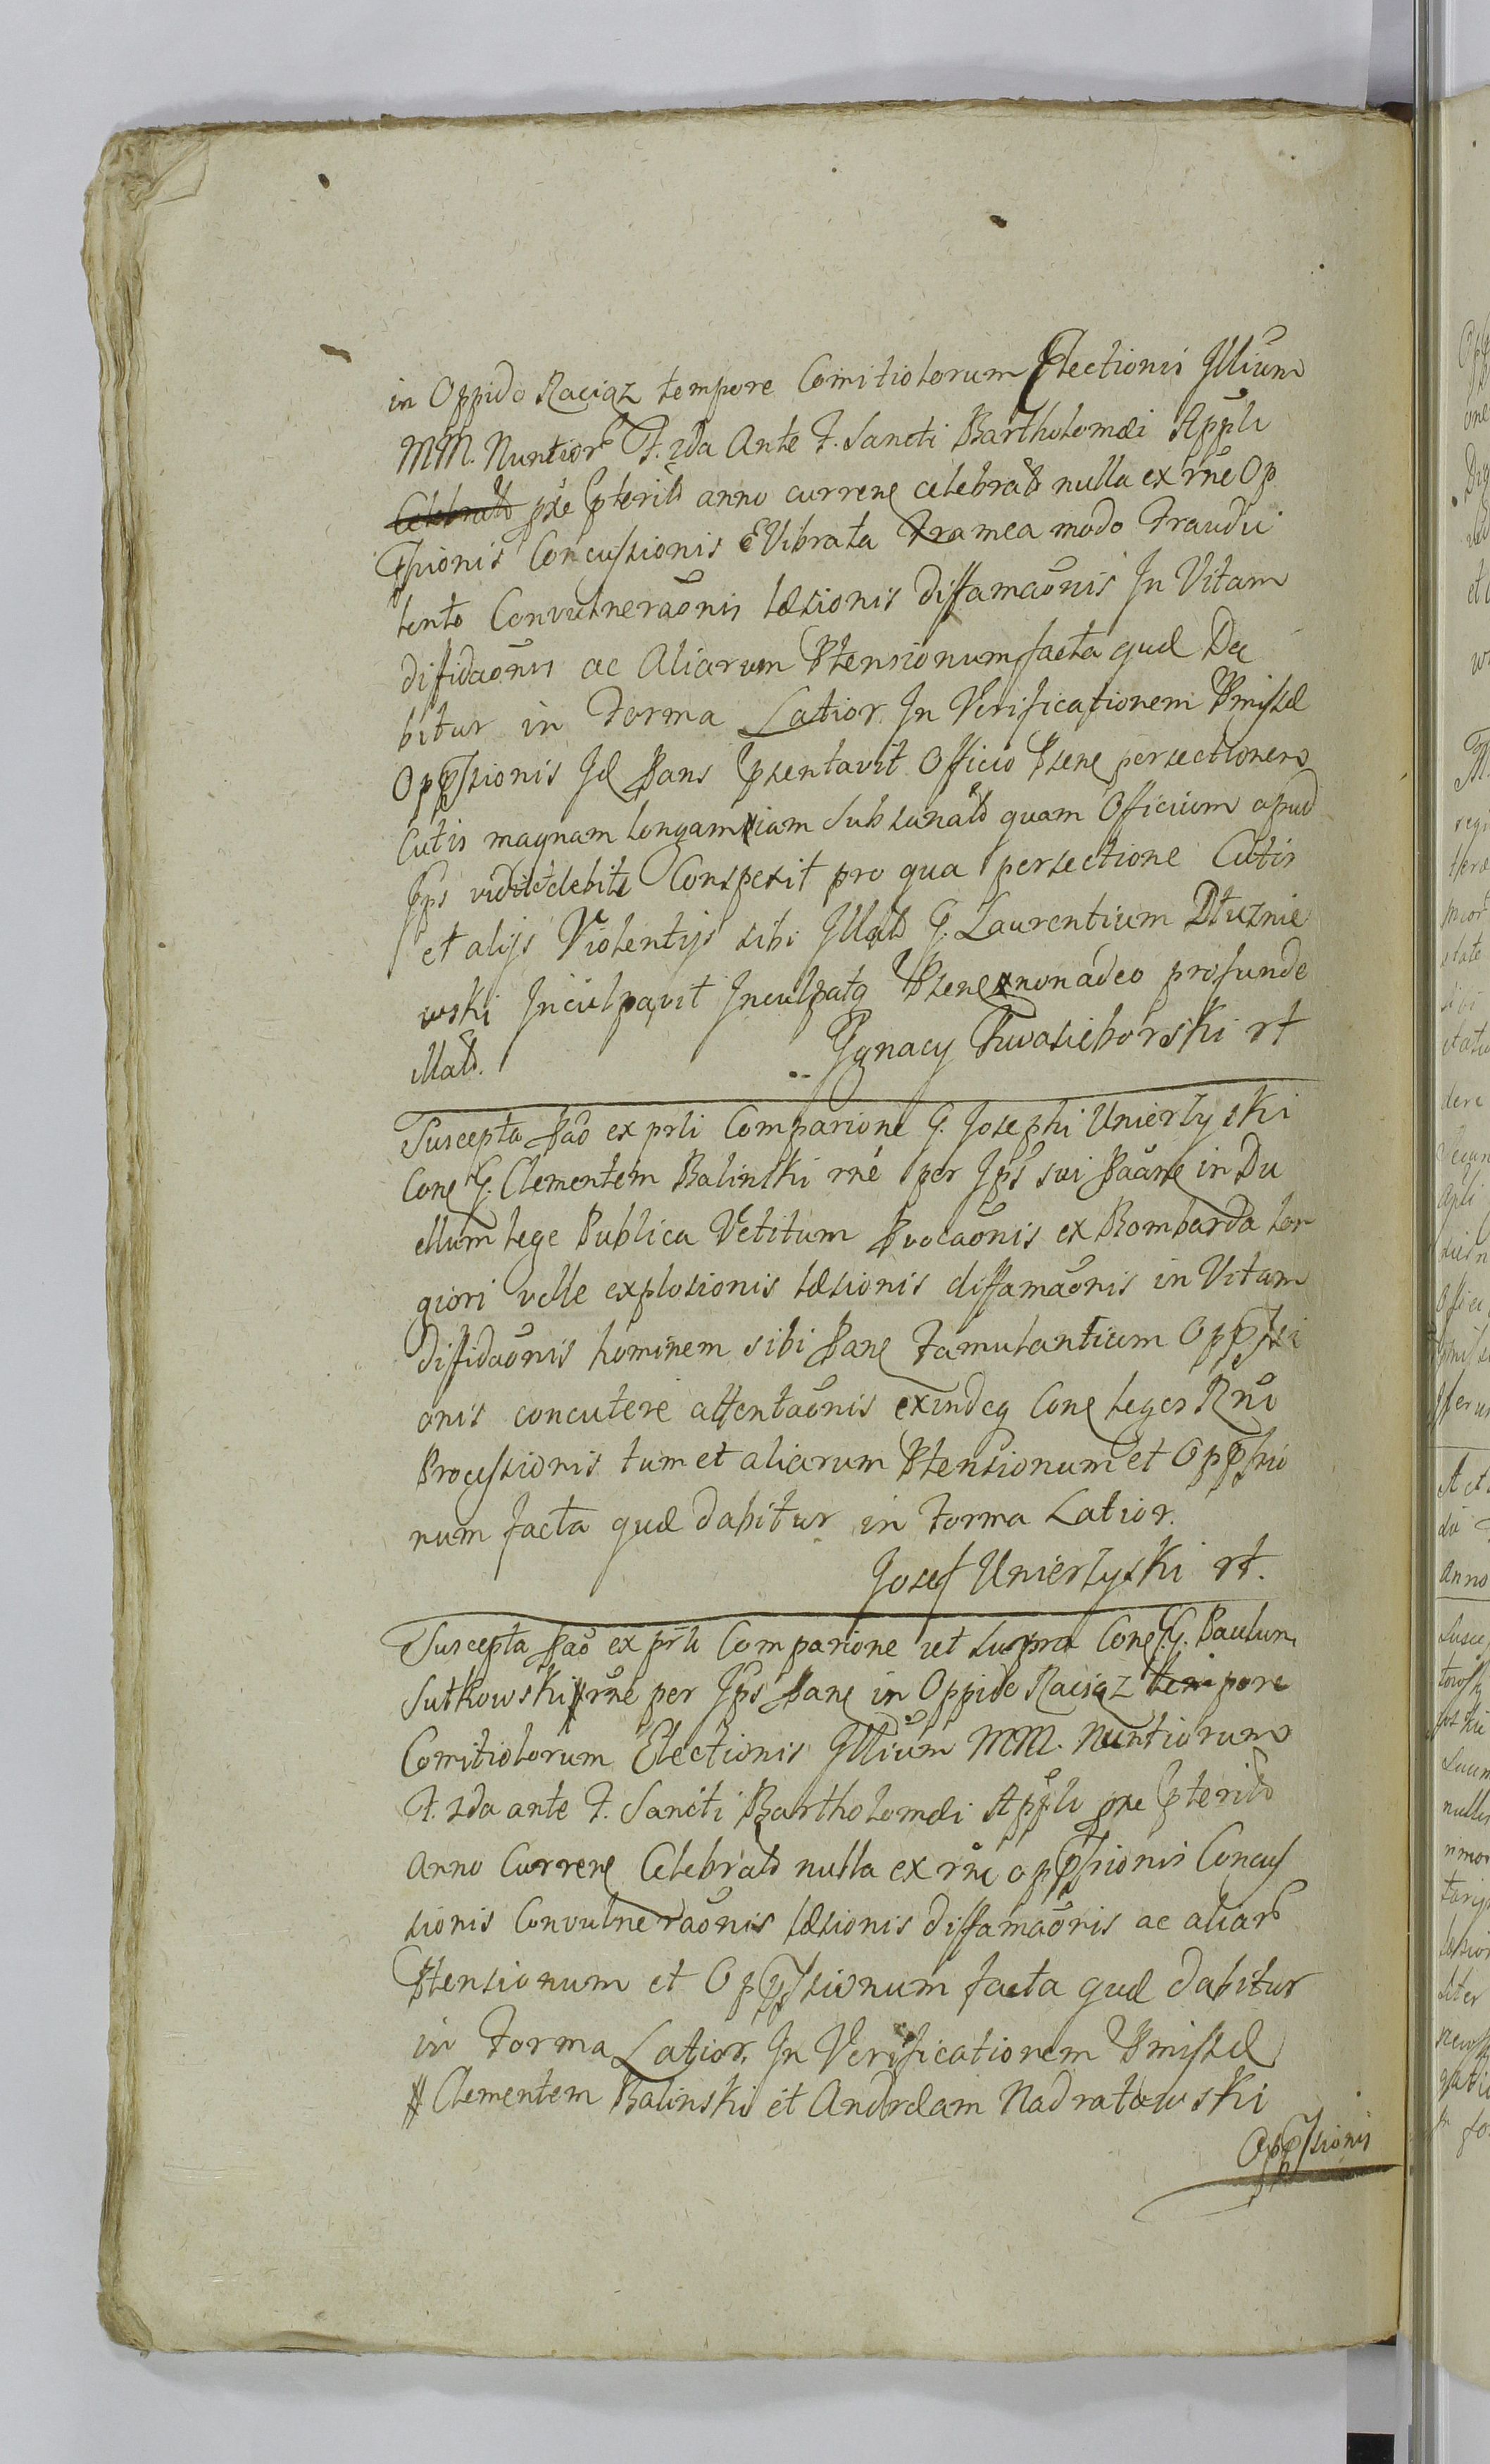 in Oppido Raciąz tempore Comitiolorum Electionis Jllium
MM. Nuntior F. 2da Ante F. Sancti Bartholomæi Appli
Celebrato pxe pterito anno curren celebrato nulla ex rne Op
pssionis Concussionis Evibrata Framea modo Fraudu
lento Convulneraonis læsionis diffamaonis Jn Vitam
difidaonis ac Aliarum Ptensionum facta quæ Da
bitur in Forma Latior. Jn Verificationem Pmissæ
Oppssionis Jd Pans Psentavit Officio Psen persectionem
Cutis magnam longam iam Subsanato quam Officium apud
Jps vidit et debite Conspexit pro qua persectione Cutis
et alijs Violentijs sibi Jllato G. Laurentium Dłuznie
wski Jnculpavit Jnculpatq Psen non adeo profunde
illato.
Jgnacy Kwasieborski rt
Suscepta Pao ex prli Comparione G. Josephi Unierzyski
Con G. Clementem Balinski rne per Jps sui Paane in Du
ellum lege Publica Vetitum Pvocaonis ex Bombarda lon
giori velle explosionis læsionis diffamaonis in Vitam
diffidaonis hominem sibi Pane Famulantium Oppssi
onis concutere attentaonis exindeq Con leges Rni
Processionis tum et aliarum Ptensionum et Oppssio
num facta quæ dabitur in Forma Latior.
Josef Unierzyski rt.
Suscepta Pao ex prli Comparione ut supra Con G.G. Paulum
Sutkowski rne per Jps Pane in Oppido Raciąz tempore
Comitiolorum Electionis Jllium MM. Nuntiorum
F. 2da ante F. Sancti Bartholomæi Appli pxe pterito
Anno Curren Celebrato nulla ex rne oppssionis Concus
sionis Convulneraonis læsionis diffamaonis ac aliar
Ptensionum et Oppssionum facta quæ dabitur
in Forma Latior, Jn Verificationem Pmissæ
# Clementem Balinski et Andream Nadratowski
Oppssionis